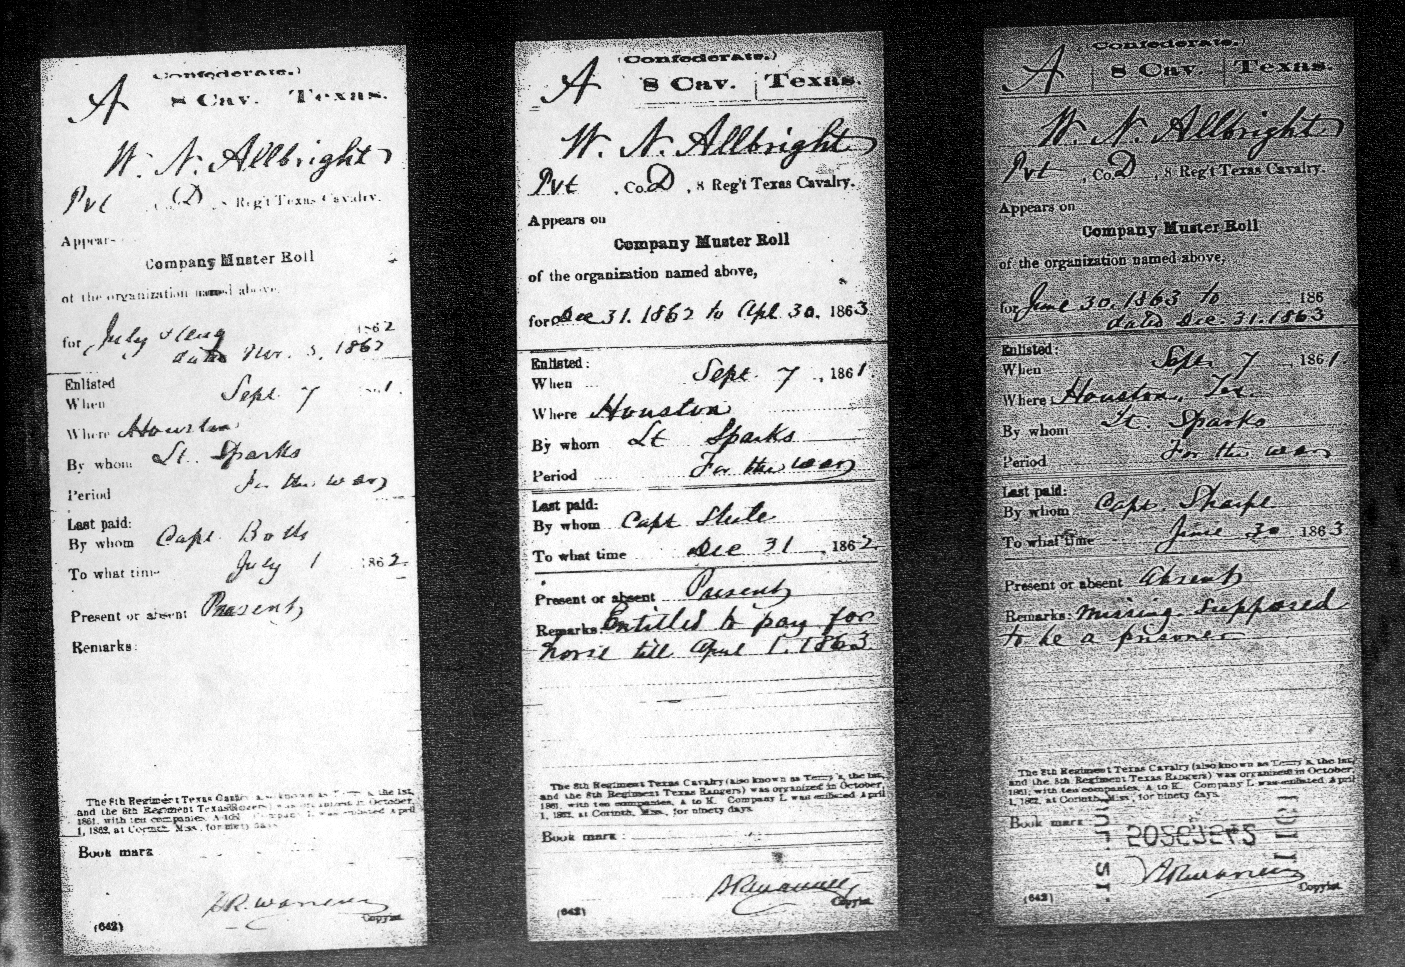 (Confederate.)
A 8 Cav. Texas.
W. N. Allbright
Pvt , Co. D , 8 Reg't Texas Cavalry.
Appears
Company Muster Roll
of the organization named above,
for July & Aug 1862
dated Nov. 3, 1862
Enlisted
When Sept 7 1.
Where Houston
By whom Lt. Sparks
Period For the war
Last paid:
By whom Capt
To what time July 1 1862.
Present or absent Present
Remarks:
The 8th Regiment Texas Cavalry (also known as the 1st,
and the 8th Regiment Texas Rangers) was organized in October,
1861, with ten companies, A to K. Company L was enlisted April
1, 1862, at Corinth, Miss., for ninety days.
Book mark
Copyist.
(642)
(Confederate.)
A 8 Cav. Texas.
W. N. Allbright
Pvt , Co. D , 8 Reg't Texas Cavalry.
Appears on
Company Muster Roll
of the organization named above,
for Dec 31. 1862 to Apl 30, 1863
Enlisted:
When Sept 7 , 1861
Where Houston
By whom Lt Sparks
Period For the war
Last paid:
By whom Capt
To what time Dec 31 , 1862
Present or absent Present
Remarks: Entitled to pay for
horse till April 1. 1863.
The 8th Regiment Texas Cavalry (also known as Terry's, the 1st,
and the 8th Regiment Texas Rangers) was organized in October,
1861, with ten companies, A to K. Company L was enlisted April
1, 1862, at Corinth, Miss., for ninety days.
Book mark:
Copyist.
(642)
(Confederate.)
A 8 Cav. Texas.
W. N. Allbright
Pvt , Co. D , 8 Reg't Texas Cavalry.
Appears on
Company Muster Roll
of the organization named above,
for June 30. 1863 to 186
dated Dec. 31. 1863
Enlisted:
When Sept 7 , 1861
Where Houston, Tex.
By whom Lt. Sparks
Period For the war
Last paid:
By whom Capt Sharpe
To what time June 30 1863
Present or absent Absent
Remarks: Missing. Supposed
to be a prisoner
The 8th Regiment Texas Cavalry (also known as Terry's, the 1st,
and the 8th Regiment Texas Rangers) was organized in October,
1861, with ten companies, A to K. Company L was enlisted April
1, 1862, at Corinth, Miss., for ninety days.
Book mark
Copyist.
(642)